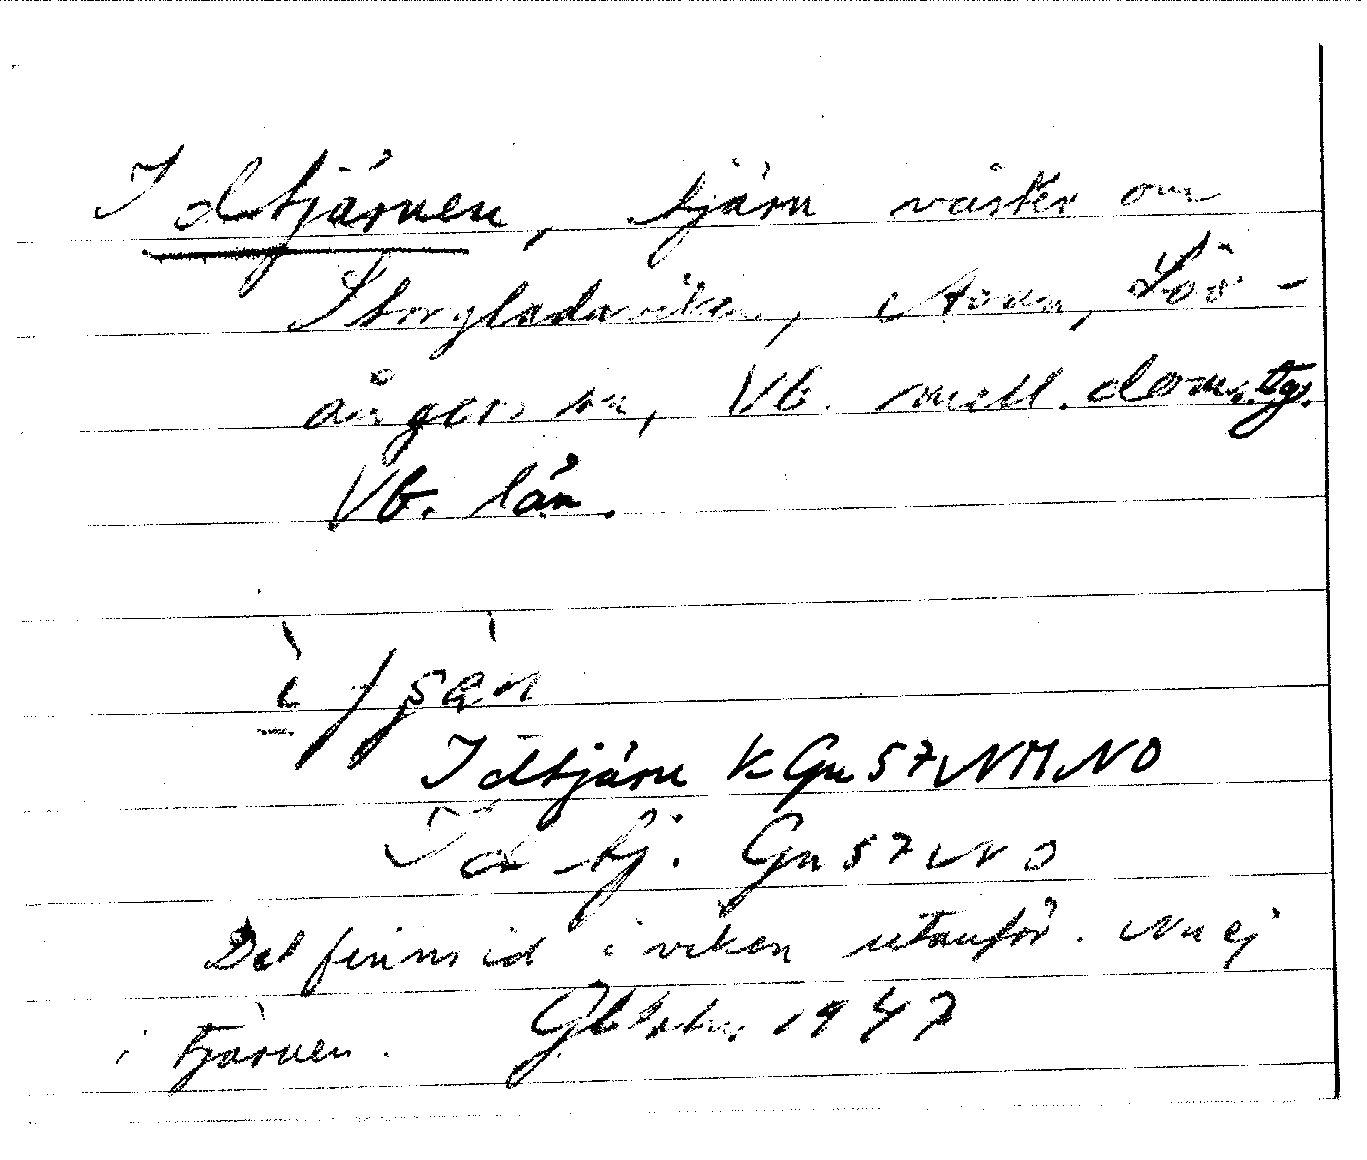 Idtjärnen, tjärn väster om
Storgladaviken, Löv-
ångers sn, Vb. mell. doms.tg.
Vb. län.
ì/şàn
Idtjärn k Gn 57 NV NO
Id tj. Gn 57 NV O
Det finns id i viken utanför. Nu ej
i tjärnen. 1947